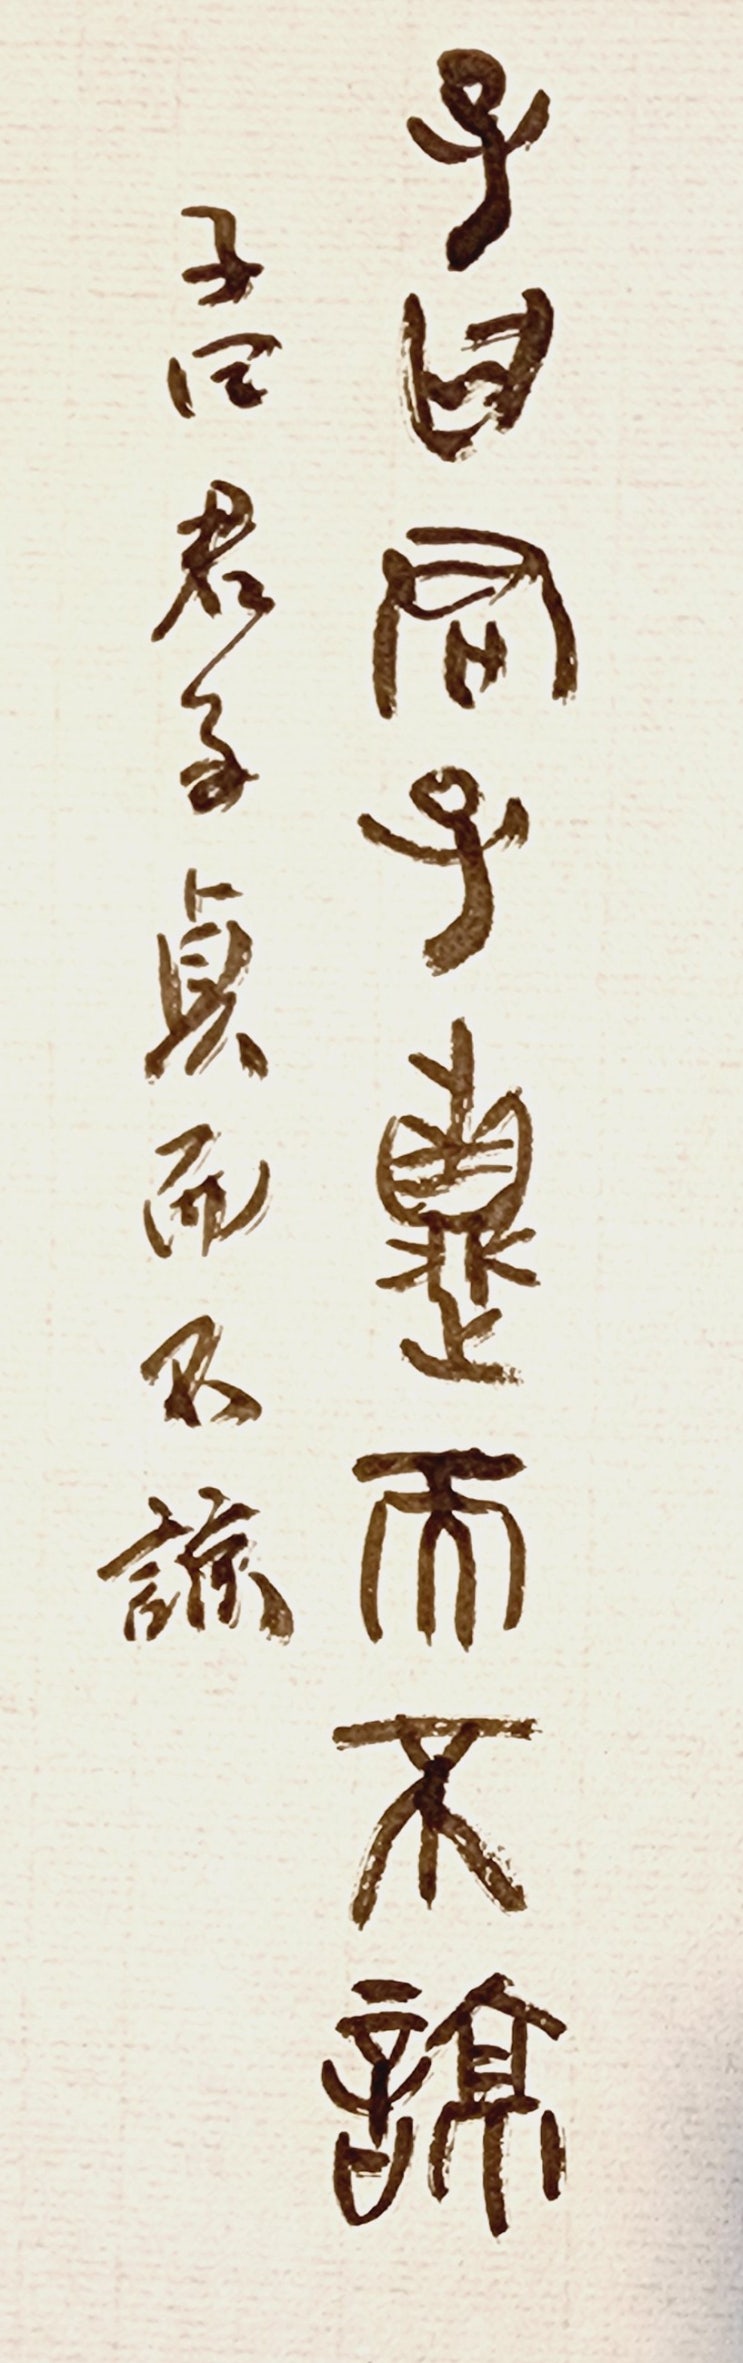 子曰君子貞而不諒
子曰君子貞而不諒